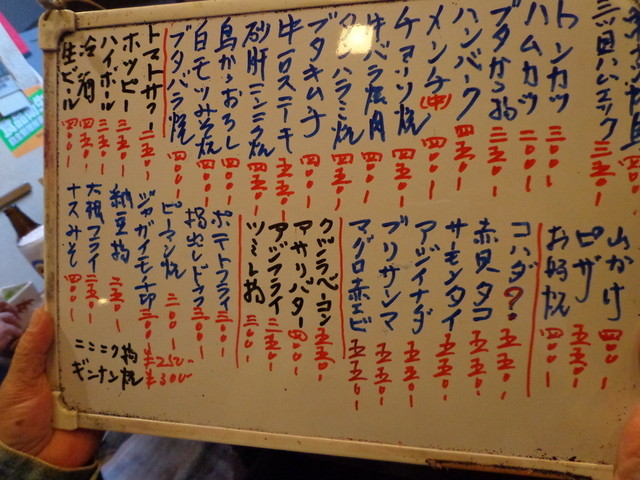 三ツ貝ハムエッグ 三五〇ー
トンカツ 三〇〇ー
ハムカツ 二〇〇ー
ブタから揚 三五〇ー
ハンバーグ 四五〇ー
メンチ(中) 四〇〇ー
チョリソ焼 四〇〇ー
牛バラ焼肉 四〇〇ー
ハラミ焼 四五〇ー
ブタキムチ 四〇〇ー
牛ロステーキ 五五〇ー
砂肝ニンニク焼 四五〇ー
鳥からおろし 四〇〇ー
白モツみそ焼 四〇〇ー
ブタバラ焼 四〇〇ー
トマトサワー 三五〇ー
ホッピー 三五〇ー
ハイボール 三五〇ー
冷酒 四五〇ー
生ビール 四〇〇ー
山かけ 四〇〇ー
ピザ 五五〇ー
お好焼 四〇〇ー
コハダ? 五五〇ー
赤貝タコ 五五〇ー
サーモンタイ 五五〇ー
アジイナダ 五五〇ー
ブリサンマ 五五〇ー
マグロ赤エビ 五五〇ー
クジラベーコン 五五〇ー
アサリバター 四〇〇ー
アジフライ 三五〇ー
ツミレ揚 三〇〇ー
ポテトフライ 三〇〇ー
揚出しドウフ 三五〇ー
ピーマン焼 三〇〇ー
ジャガイモチ
納豆揚 三五〇ー
大根フライ 三五〇ー
ナスみそ 四〇〇ー
ニンニク揚 ¥250ー
ギンナン焼 ¥300ー